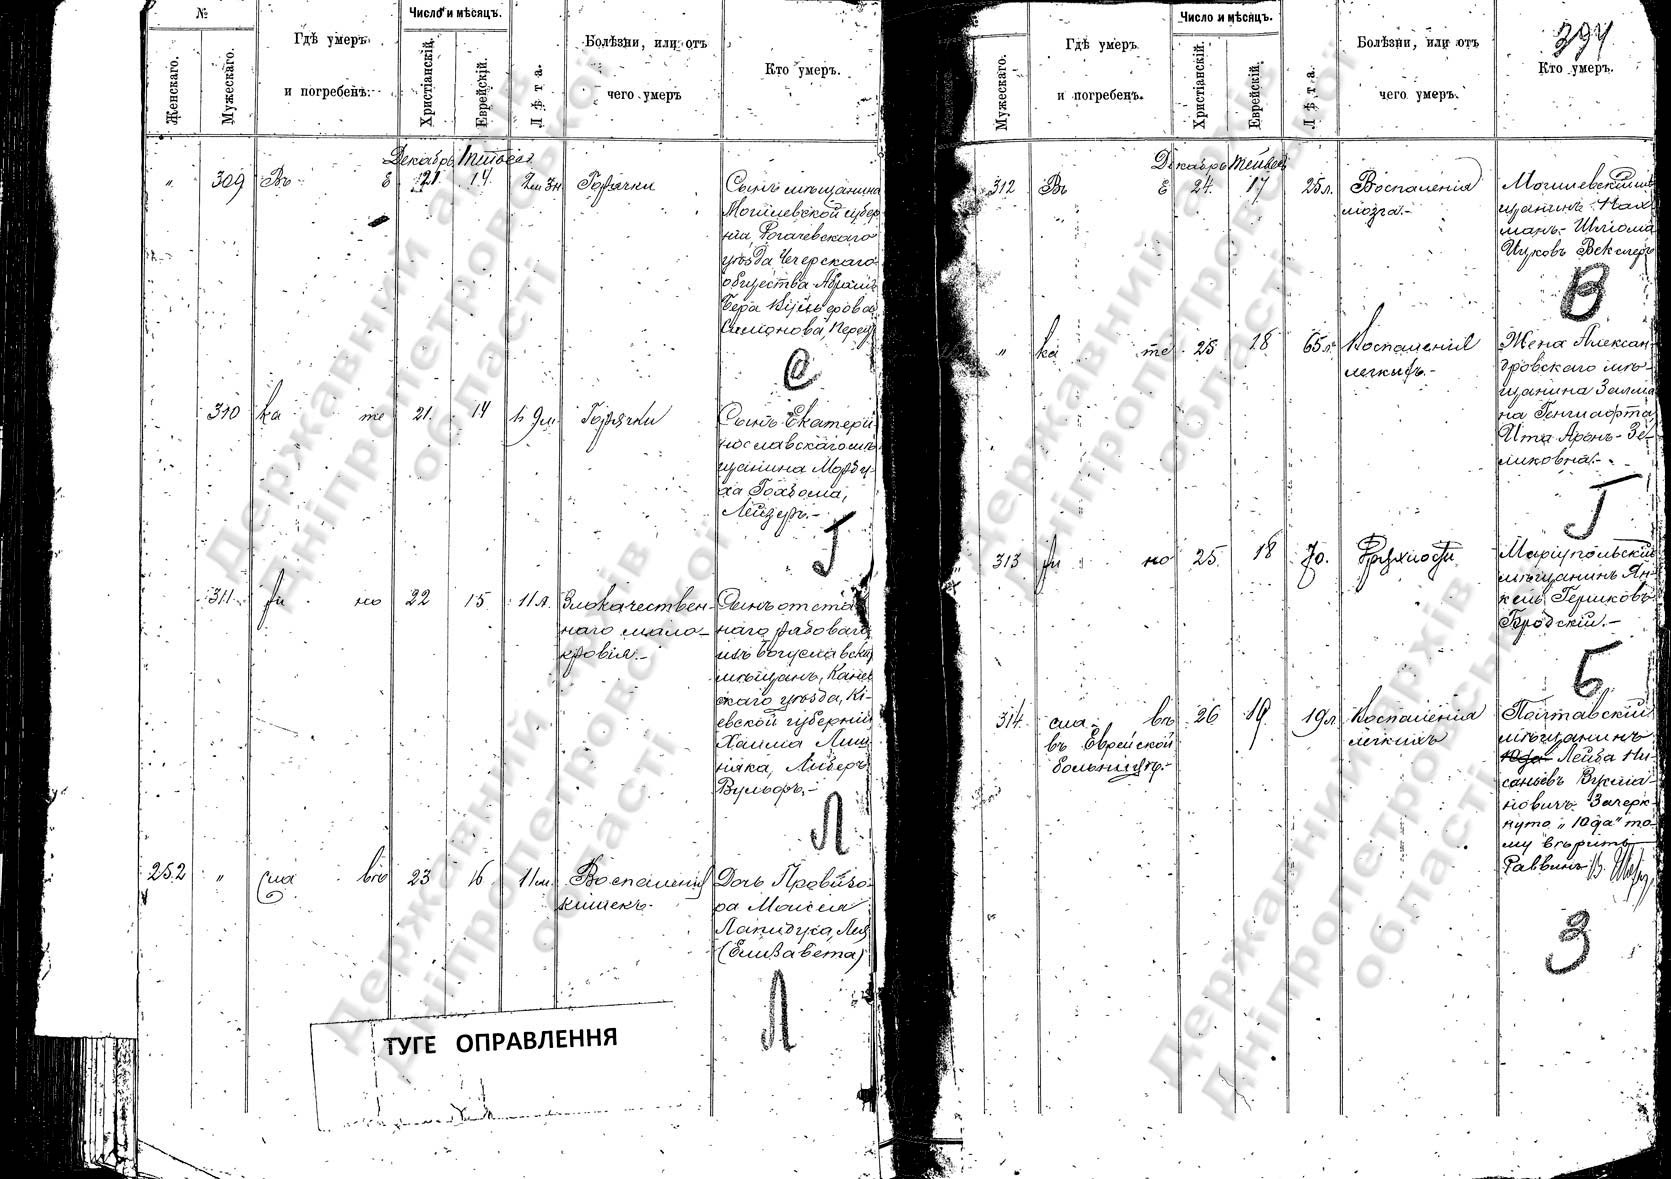 №
Женскаго.
Мужескаго.
Гдѣ умеръ
и погребенъ.
Число и мѣсяцъ.
Христіанскій.
Еврейскій.
Лѣта.
Болѣзни, или отъ
чего умеръ
Кто умеръ.
Декабрь Тейвесъ
„ 309 Въ Е 21 14 Горячки
Сынъ мѣщанина
Могилевской губер
ніи, Рогачевскаго
уѣзда Чечерскаго
общества Абрамъ
Бера
Симонова, Перецъ
С
310 ка те 21. 14 9 м. Горячки
Сынъ Екатери
нославскаго мѣ
щанина Морду
ха
Лейзеръ.-
Г
311 ри но 22 15 11 л. Злокачествен-
наго мало-
кровія.-
Сынъ отстав
наго рядоваго
изъ богуславскихъ
мѣщанъ, Канев
скаго уѣзда, Кі-
евской губерніи
Хаима Лиш
няка, Лейзеръ
Вульфъ.-
Л
252 „ сла въ 23 16 11 м. Воспаленія
кишекъ.
Дочь Провизо-
ра Моисея
Лапидуса, Лея
(Елизавета)
Л
ТУГЕ ОПРАВЛЕННЯ
394
Мужескаго.
Гдѣ умеръ
и погребенъ.
Число и мѣсяцъ.
Христіанскій.
Еврейскій.
Лѣта.
Болѣзни, или отъ
чего умеръ.
Кто умеръ.
Декабрь Тейвесъ
312 Въ Е 24. 17 25 л. Воспаленія
мозга.-
Могилевскій мѣ
щанинъ Нах
манъ-Шліома
Ицковъ Векслеръ
В
„ ка те 25 18 65 л. Воспаленія
легкихъ.-
Жена Алексан-
дровскаго мѣ-
щанина Залма
на
Ита Аронъ-Зе-
ликовна.-
Г
313 ри но 25 18 70. Дряхлости
Маріупольскій
мѣщанинъ Ян-
кель Гершковъ
Бродскій.-
Б
314. сла въ 26 19 19 л Воспаленія
въ Еврейской легкихъ
больницѣ.-
Полтавскій
мѣщанинъ
Юда Лейба Ни-
саневъ
новичъ. Зачерк-
нуто „Юда" то-
му вѣрить
Раввинъ
З
Державний архів
Дніпропетровської
області